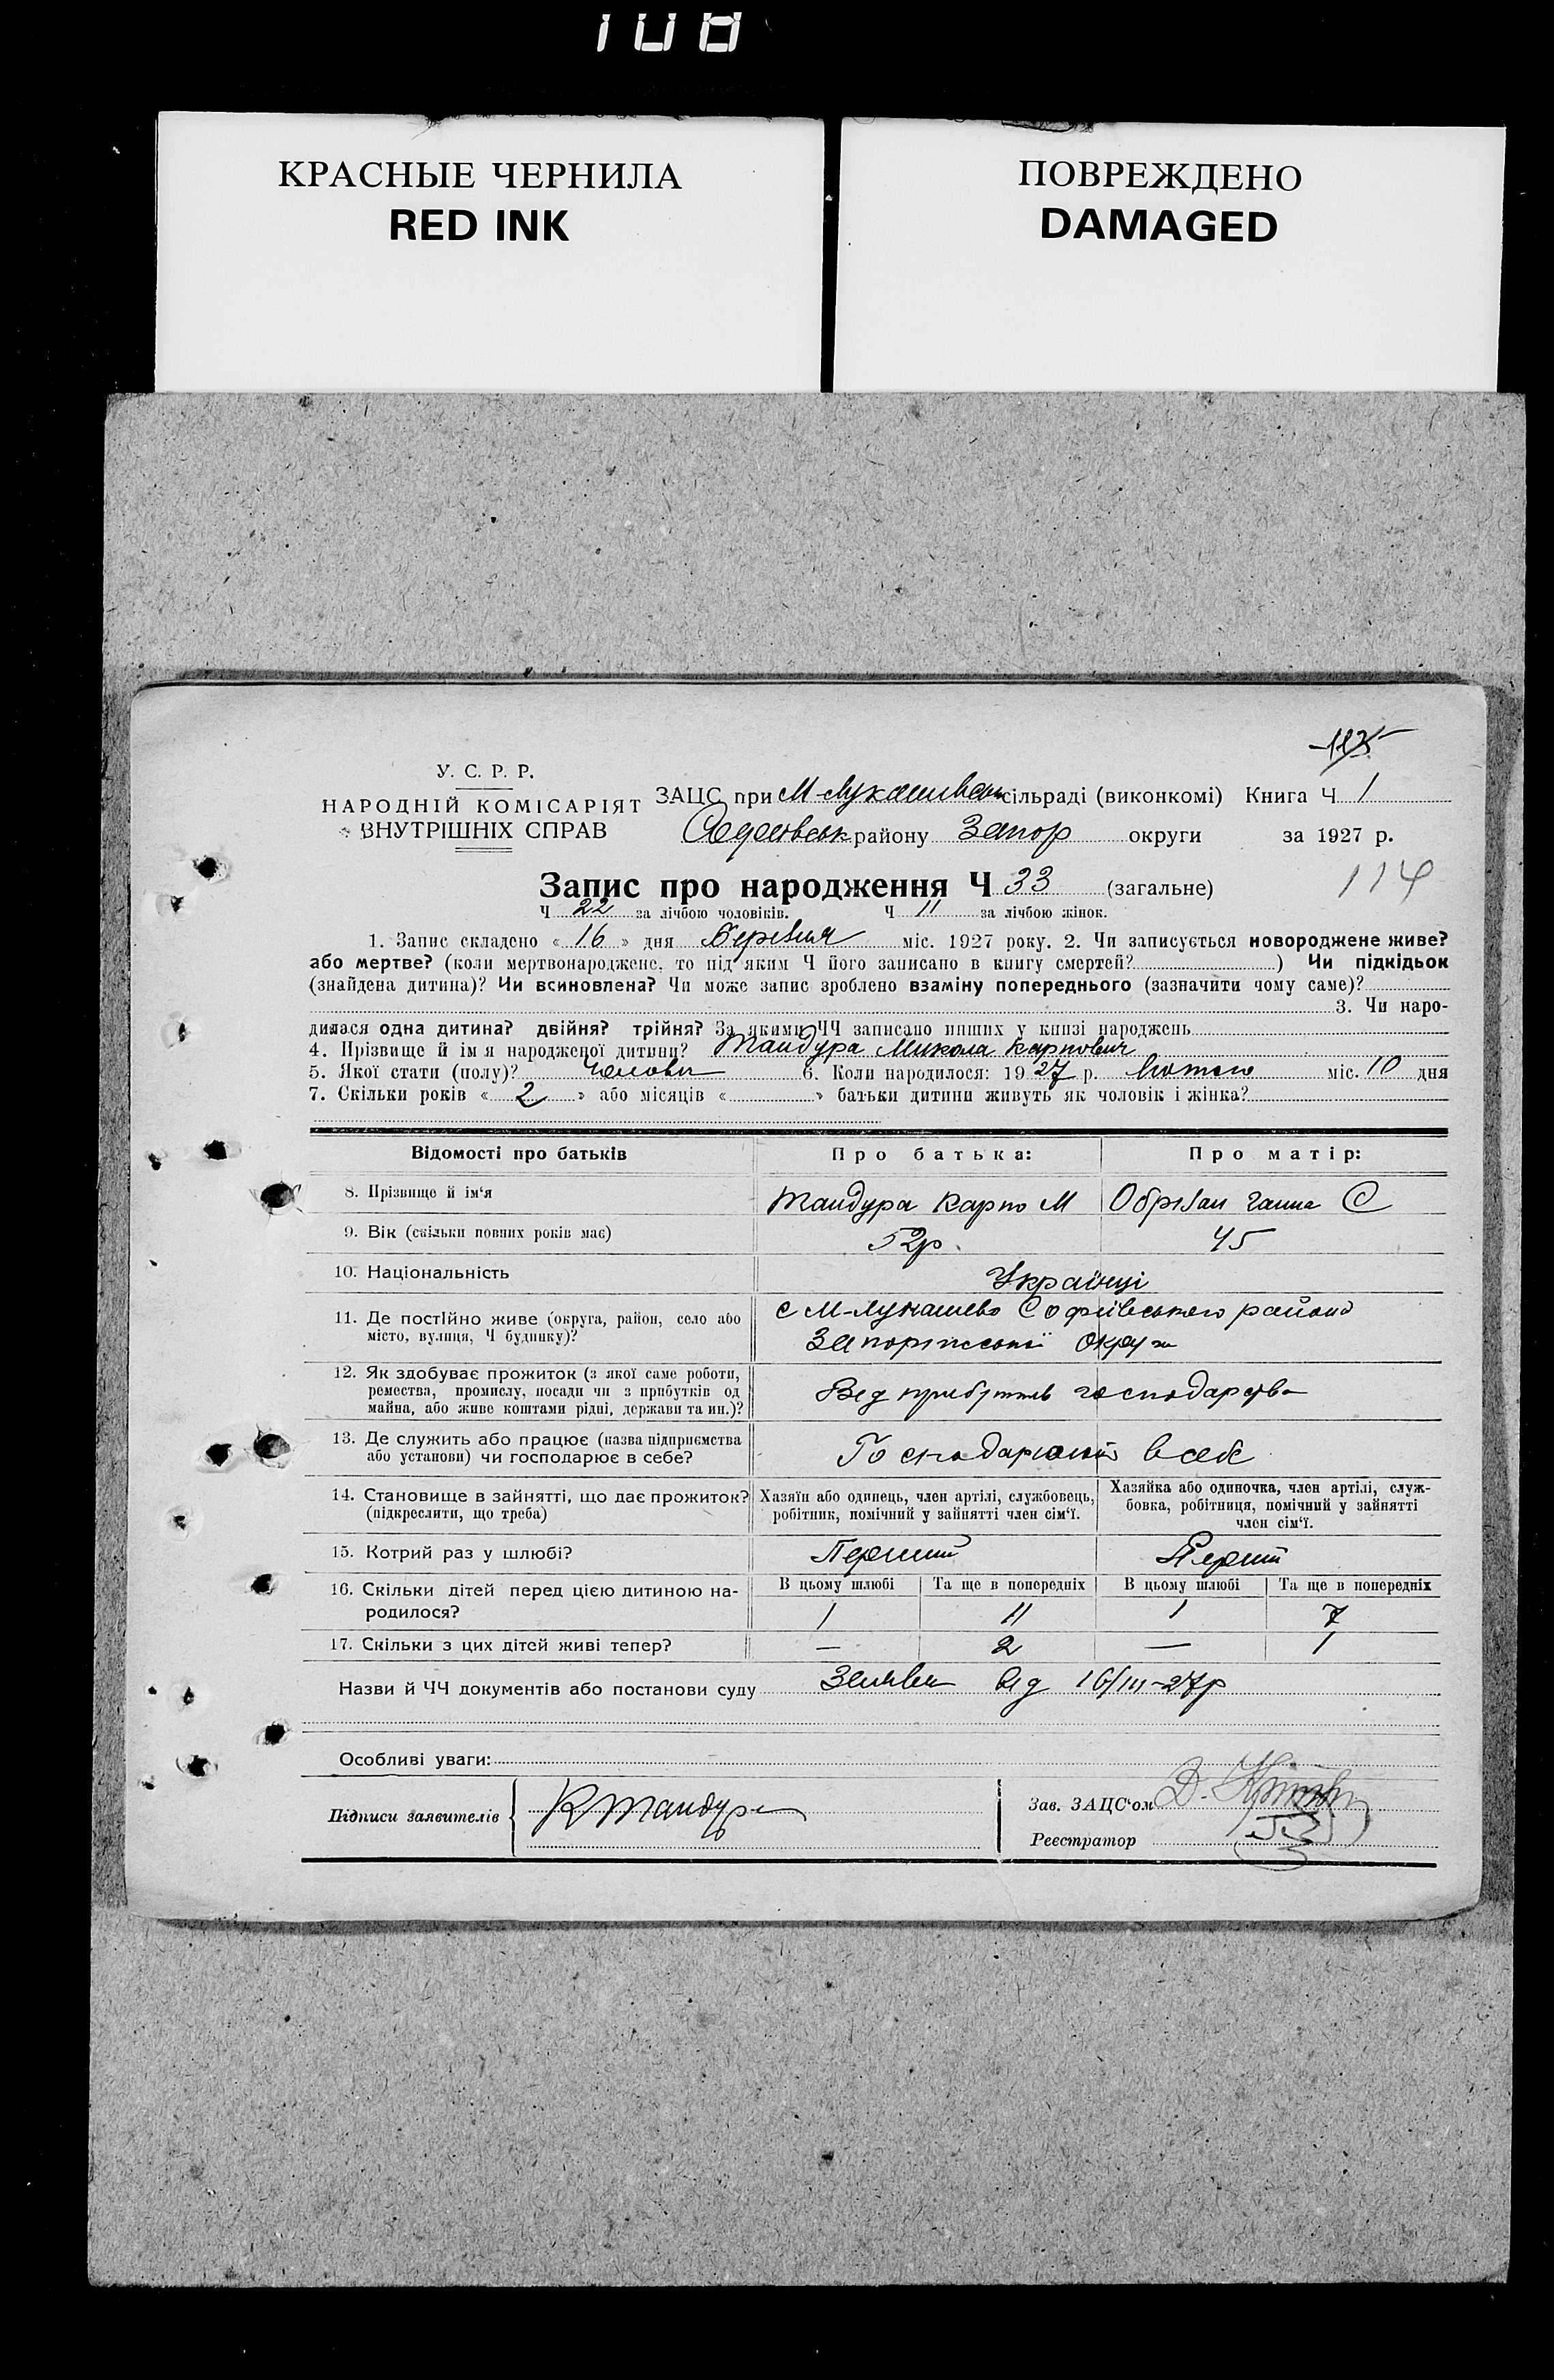 108
КРАСНЫЕ ЧЕРНИЛА
RED INK
ПОВРЕЖДЕНО
DAMAGED
У. С. Р. Р.
НАРОДНІЙ КОМІСАРІЯТ
ВНУТРІШНІХ СПРАВ
ЗАЦС при М-Лукашівськ сільраді (виконкомі) Книга Ч 1
району Запор округи за 1927 р.
114
Запис про народження Ч 33 (загальне)
Ч 22 за лічбою чоловіків. Ч 11 за лічбою жінок.
1. Запис складено « 16 » дня Березня міс. 1927 року. 2. Чи записується новороджене живе?
або мертве? (коли мертвонароджене, то під яким Ч його записано в книгу смертей? ) Чи підкідьок
(знайдена дитина)? Чи всиновлена? Чи може запис зроблено взаміну попереднього (зазначити чому саме)?
3. Чи наро-
дилася одна дитина? двійня? трійня? За якими ЧЧ записано инших у книзі народжень
4. Прізвище й ім я народженої дитини? Тандура Микола Карпович
5. Якої стати (полу)? 6. Коли народилося: 1927 р. Лютого міс. 10 дня
7. Скільки років « 2 » або місяців « » батьки дитини живуть як чоловік і жінка?
Відомості про батьків Про батька: Про матір:
8. Прізвище й ім'я Тандура Карпо М Обрізан Ганна С
9. Вік (скільки повних років має) 52р. 45
10. Національність Українці
11. Де постійно живе (округа, район, село або
місто, вулиця, Ч будинку)?
с М-Лукашево Софиівського района
Запоріжської Округи
12. Як здобуває прожиток (з якої саме роботи,
ремества, промислу, посади чи з прибутків од
майна, або живе коштами рідні, держави та ин.)?
Від прибутків господарства
13. Де служить або працює (назва підприємства
або установи) чи господарює в себе?
в себе
14. Становище в зайнятті, що дає прожиток?
(підкреслити, що треба)
Хазяїн або одинець, член артілі, службовець,
робітник, помічний у зайнятті член сім'ї.
Хазяйка або одиночка, член артілі, служ-
бовка, робітниця, помічний у зайнятті
член сім'ї.
15. Котрий раз у шлюбі? Перший Перший
16. Скільки дітей перед цією дитиною на-
родилося?
В цьому шлюбі Та ще в попередніх В цьому шлюбі Та ще в попередніх
1 11 1 7
17. Скільки з цих дітей живі тепер? — 2 — 1
Назви й ЧЧ документів або постанови суду Заява від 16/III-27р
Особливі уваги:
Підписи заявителів К Тандура
Зав. ЗАЦС'ом
Реєстратор